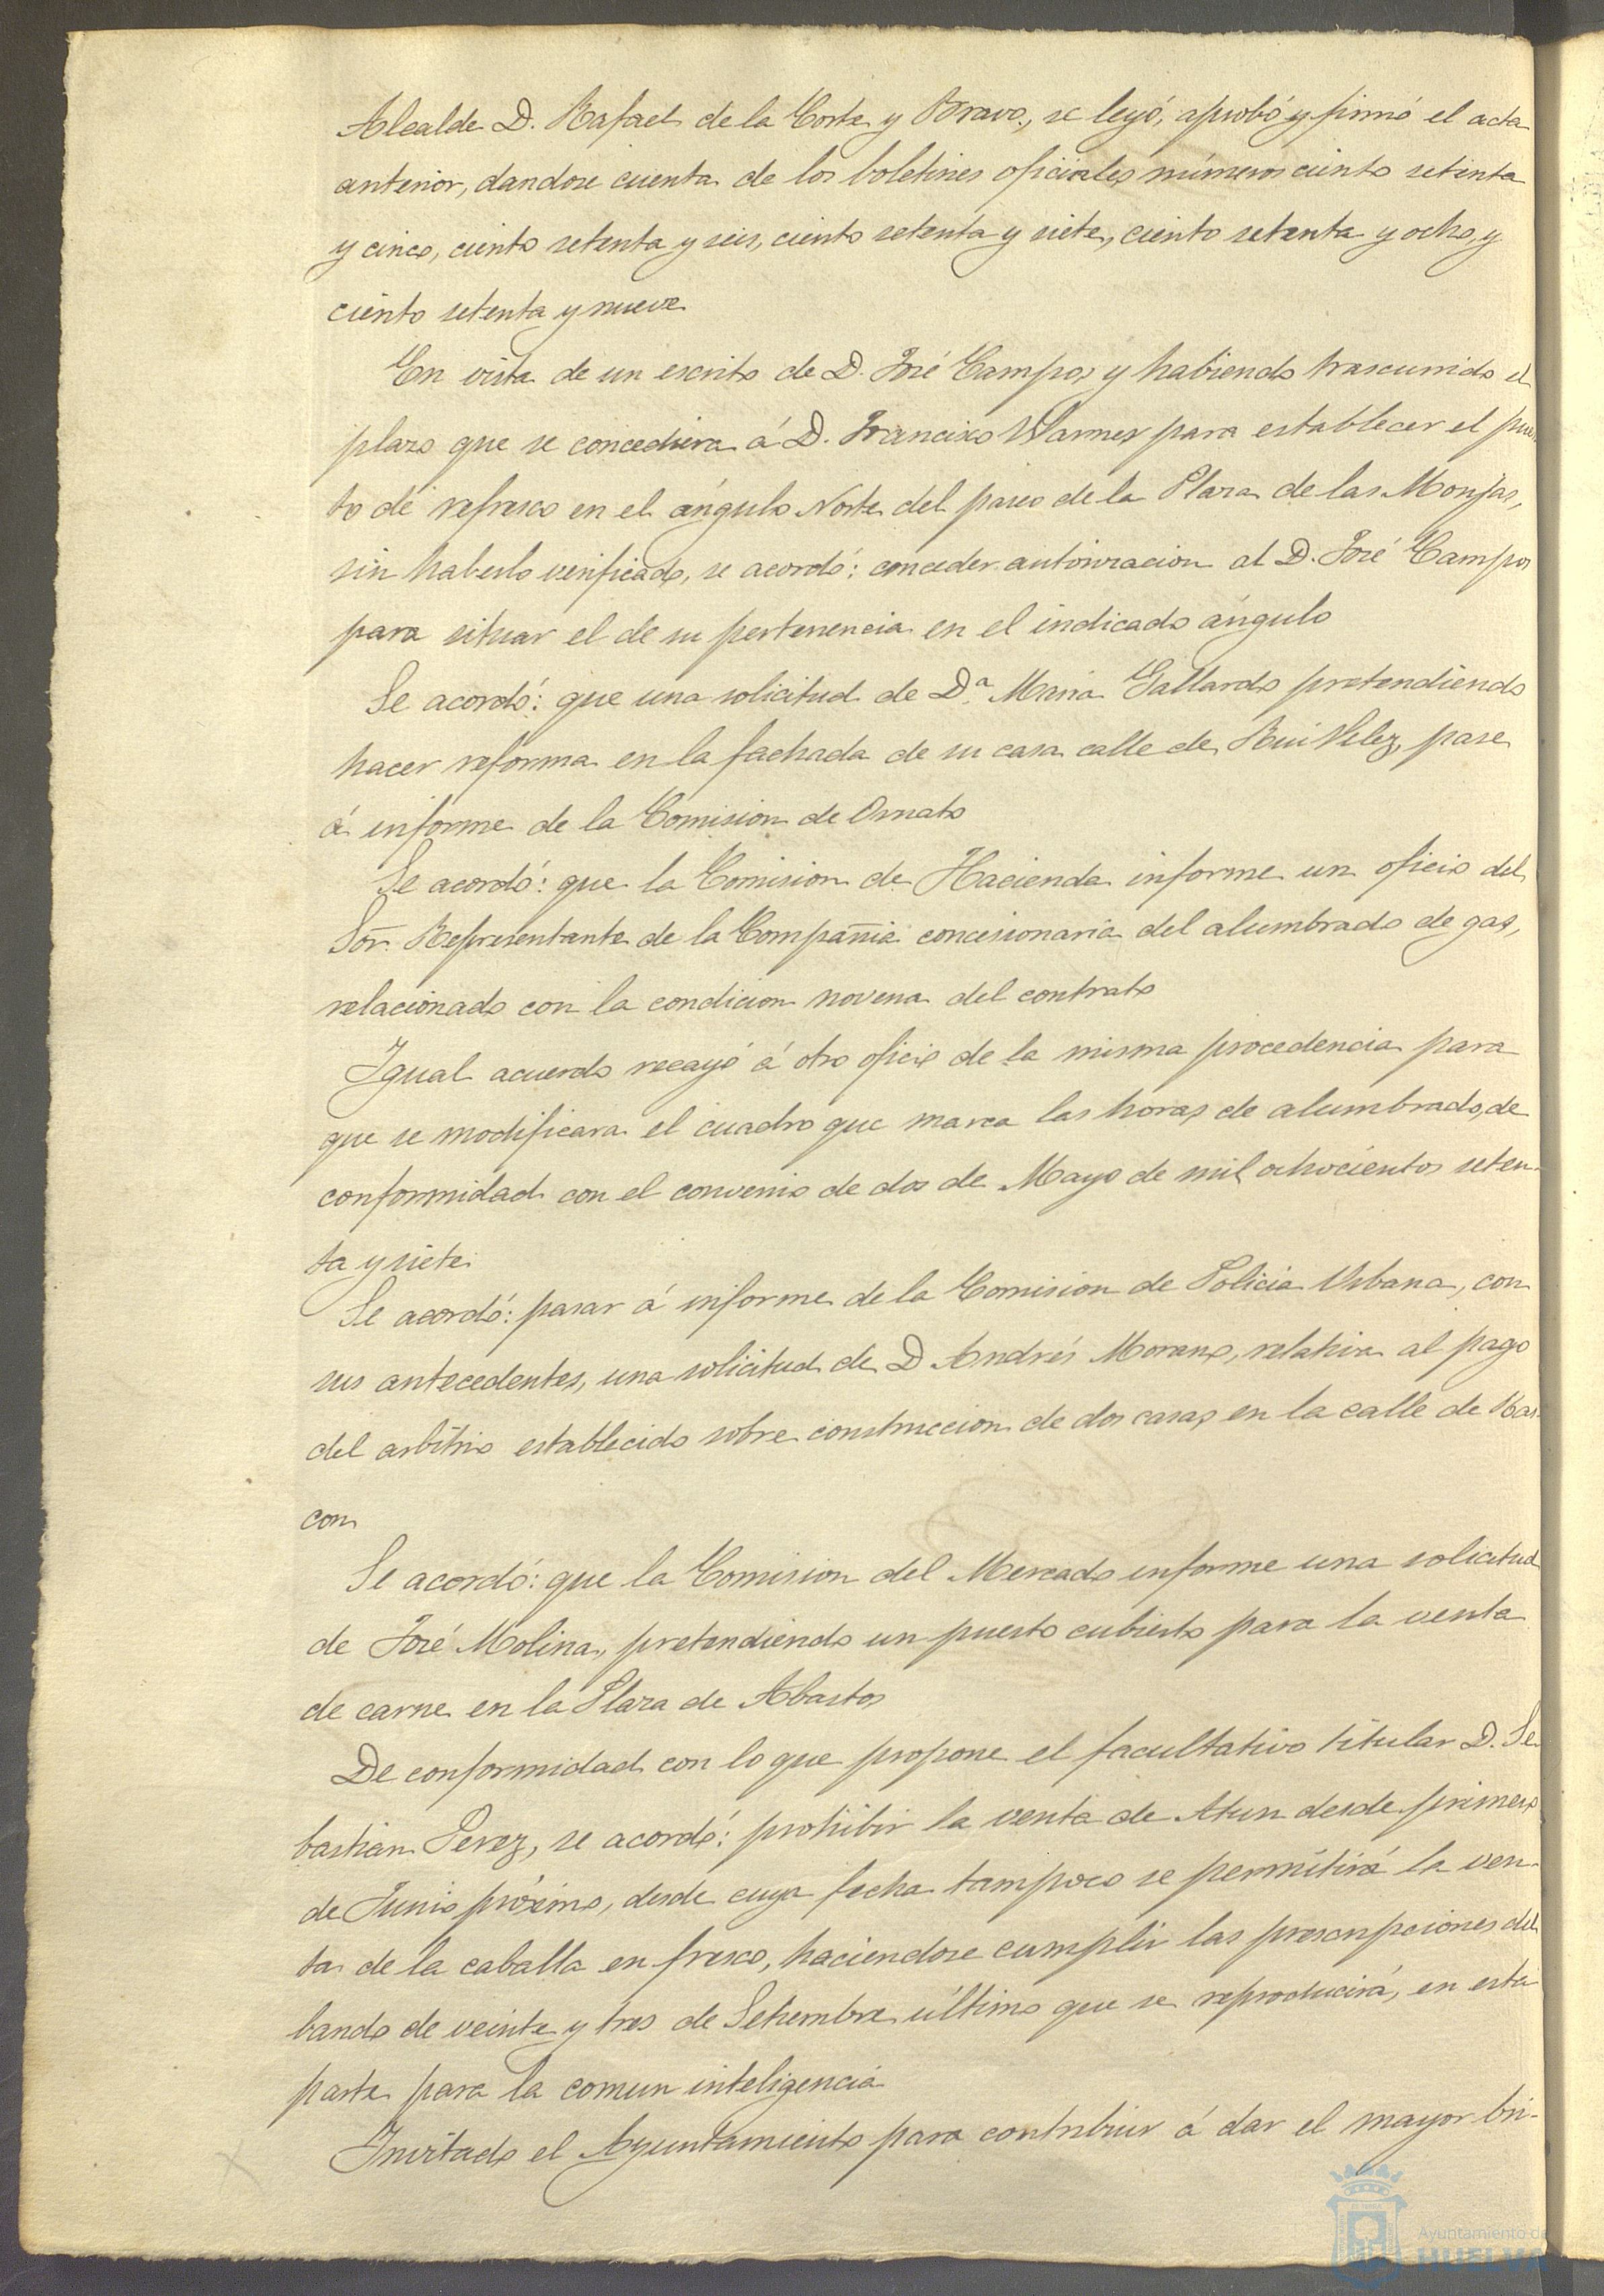 Alcalde D. Rafael de la Corte y Bravo, se leyó, aprobó y firmó el acta
anterior, dandose cuenta de los boletines oficiales números ciento setenta
y cinco, ciento setenta y seis, ciento setenta y siete, ciento setenta y ocho, y
ciento setenta y nueve
En vista de un escrito de D. José Campos y habiendo trascurrido el
plazo que se concediera á D. Francisco Warnes para establecer el pues
to de refresco en el ángulo Norte del paseo de la Plaza de las Monjas,
sin haberlo verificado, se acordó: conceder autorizacion al D. José Campos
para situar el de su pertenencia en el indicado ángulo
Se acordó: que una solicitud de Dª. Maria Gallardo pretendiendo
hacer reforma en la fachada de su casa calle de Rui Velez, pase
á informe de la Comision de Ornato
Se acordó: que la Comision de Hacienda informe un oficio del
Sor. Representante de la Compañia concesionaria del alumbrado de gas,
relacionado con la condicion novena del contrato
Igual acuerdo recayó á otro oficio de la misma procedencia para
que se modificara el cuadro que marca las horas de alumbrado, de
conformidad con el convenio de dos de Mayo de mil ochocientos seten-
ta y siete
Se acordó: pasar á informe de la Comision de Policia Urbana, con
sus antecedentes, una solicitud de D Andrés Morano, relativa al pago
del arbitrio establecido sobre construccion de dos casas en la calle de Ras
con
Se acordó: que la Comision del Mercado informe una solicitud
de José Molina, pretendiendo un puesto cubierto para la venta
de carne en la Plaza de Abastos
De conformidad con lo que propone el facultativo titular D. Se
bastian Perez, se acordó: prohibir la venta de Atun desde primero
de Junio próximo, desde cuya fecha tampoco se permitirá la ven-
ta de la caballa en fresco, haciendose cumplir las prescripciones del
bando de veinte y tres de Setiembre último que se reproducirá, en esta
parte para la comun inteligencia
Invitado el Ayuntamiento para contribuir á dar el mayor bri-
Ayuntamiento de
HUELVA